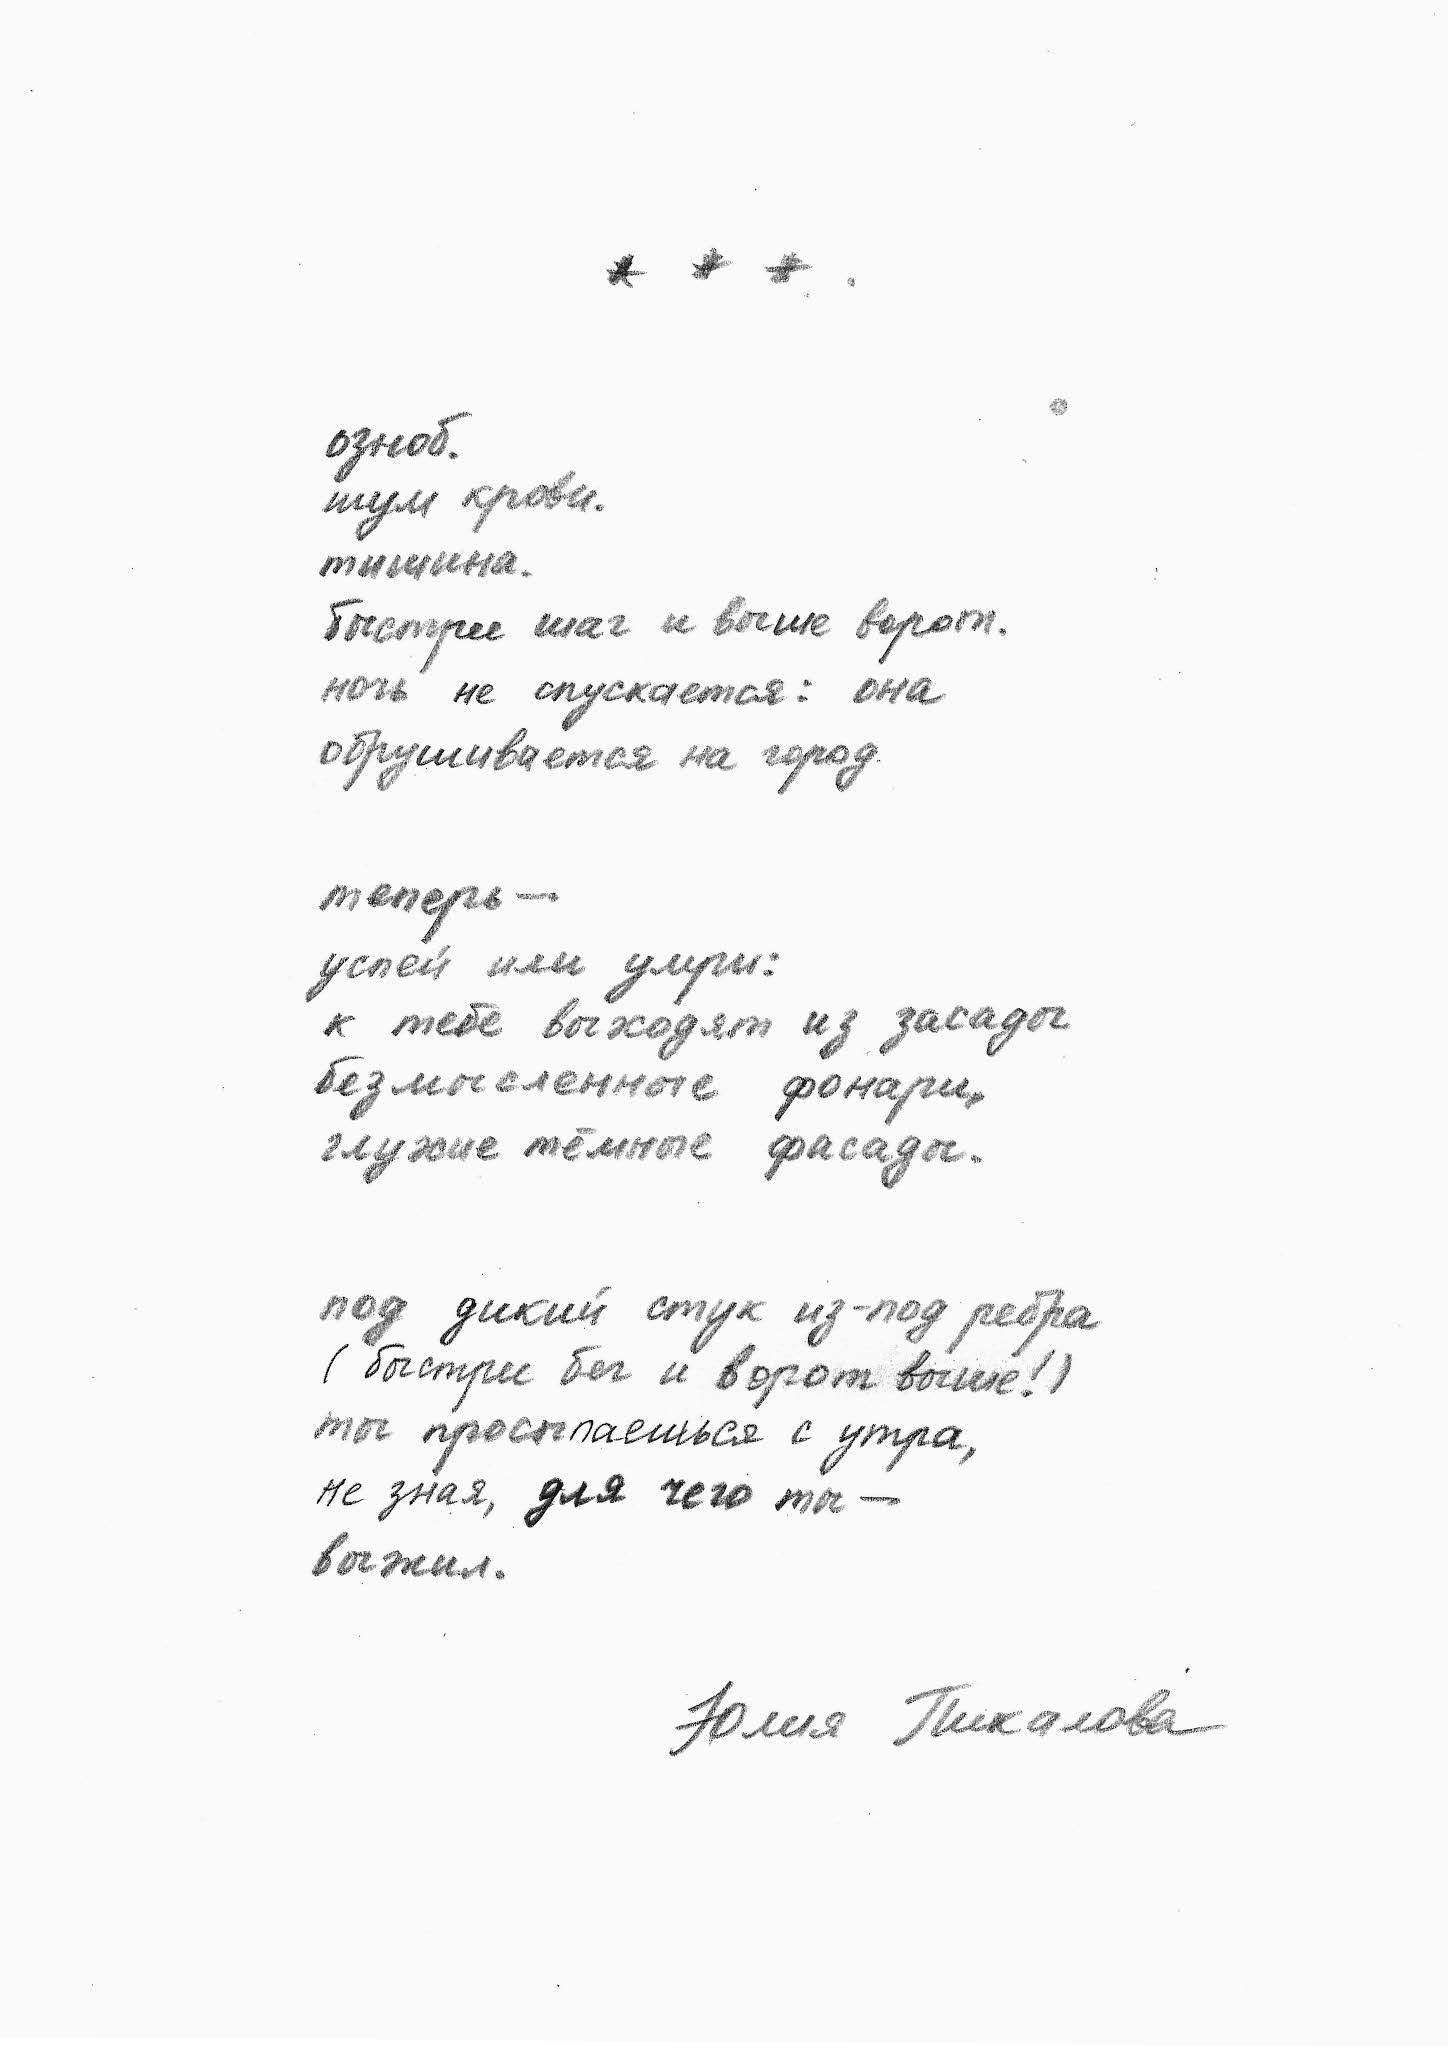 * * *
озноб.
шум крови.
тишина.
быстрее шаг и выше ворот.
ночь не спускается: она
обрушивается на город
теперь —
успей или умри:
к тебе выходят из засады
безмысленные фонари,
глухие тёмные фасады.
под дикий стук из-под ребра
(быстрее бег и ворот выше!)
ты просыпаешься с утра,
не зная, для чего ты —
выжил.
Юлия Пикалова